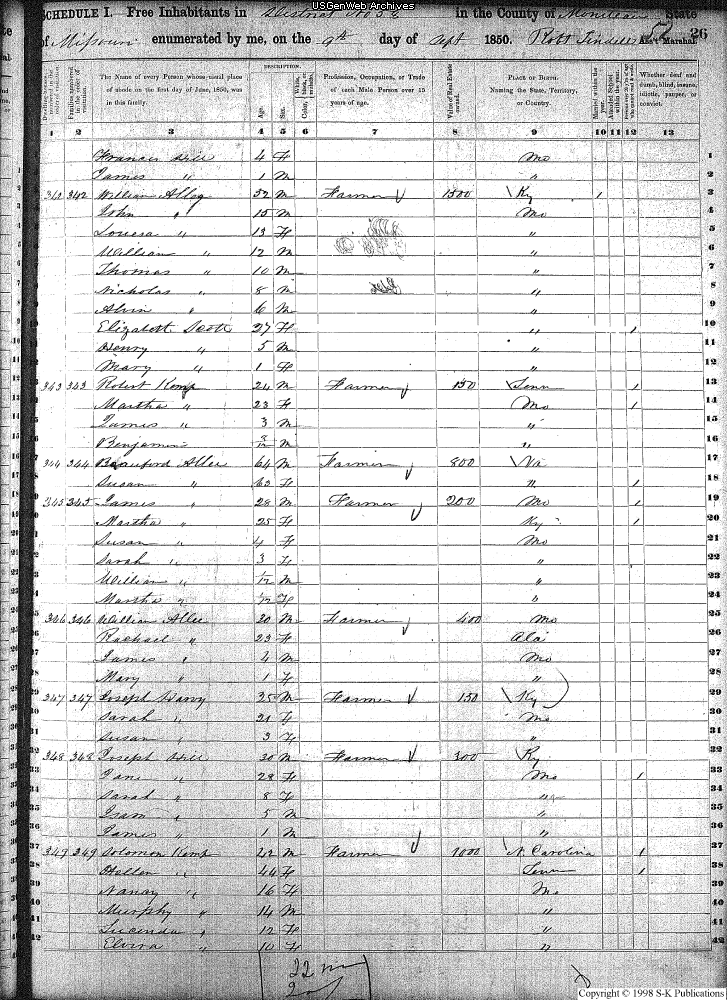 USGenWeb Archives
SCHEDULE I. Free Inhabitants in District No 52 in the County of Moniteau State 26
of Missouri enumerated by me, on the 9th day of Sept 1850. Robt Ass't Marshal.
DESCRIPTION.
The Name of every Person whose usual place of abode on the first day of June, 1850, was in this family.
Age. Sex. Color,
Profession, Occupation, or Trade of each Male Person over 15 years of age.
Value of Real Estate owned.
PLACE OF BIRTH. Naming the State, Territory, or Country.
Married within the year.
Whether deaf and dumb, blind, insane, idiotic, pauper, or convict.
1 2 3 4 5 6 7 8 9 10 11 12 13
Francis Hill 4 F Mo 1
James " 1 M " 2
342 342 William 52 M Farmer 1500 Ky 1 3
John " 15 M Mo 4
Louisa " 13 F " 5
William " 12 M " 6
Thomas " 10 M " 7
Nicholas " 8 M " 8
Alvin " 6 M " 9
Elizabeth Scott 27 F " 1 10
Henry " 5 M " 11
Mary " 1 F " 12
343 343 Robert Kemp 24 M Farmer 150 Tenn 1 13
Martha " 23 F Mo 1 14
James " 3 M " 15
Benjamin M " 16
344 344 Allee 64 M Farmer 800 Va 17
Susan " 62 F " 1 18
345 345 James " 28 M Farmer 200 Mo 1 19
Martha " 25 F Ky 1 20
Susan " 4 F Mo 21
Sarah " 3 F " 22
William " M " 23
Martha " F " 24
346 346 William Allee 30 M Farmer 400 Mo 25
Rachael " 23 F Ala 26
James " 4 M Mo 27
Mary " 1 F " 28
347 347 Joseph 35 M Farmer 150 Ky 29
Sarah " 21 F Mo 30
Susan " 3 F " 31
348 348 Joseph Hill 30 M Farmer 300 Ky 32
Jane " 28 F Mo 1 33
Sarah " 8 F " 34
Isam " 5 M " 35
James " 1 M " 36
349 349 Solomon Kemp 42 M Farmer 1000 N. Carolina 1 37
Hellen " 44 F Tenn 1 38
Nancy " 16 F Mo 39
Murphy " 14 M " 40
Lucinda " 12 F " 41
Elvira " 10 F " 42
22 m
Copyright © 1998 S-K Publications